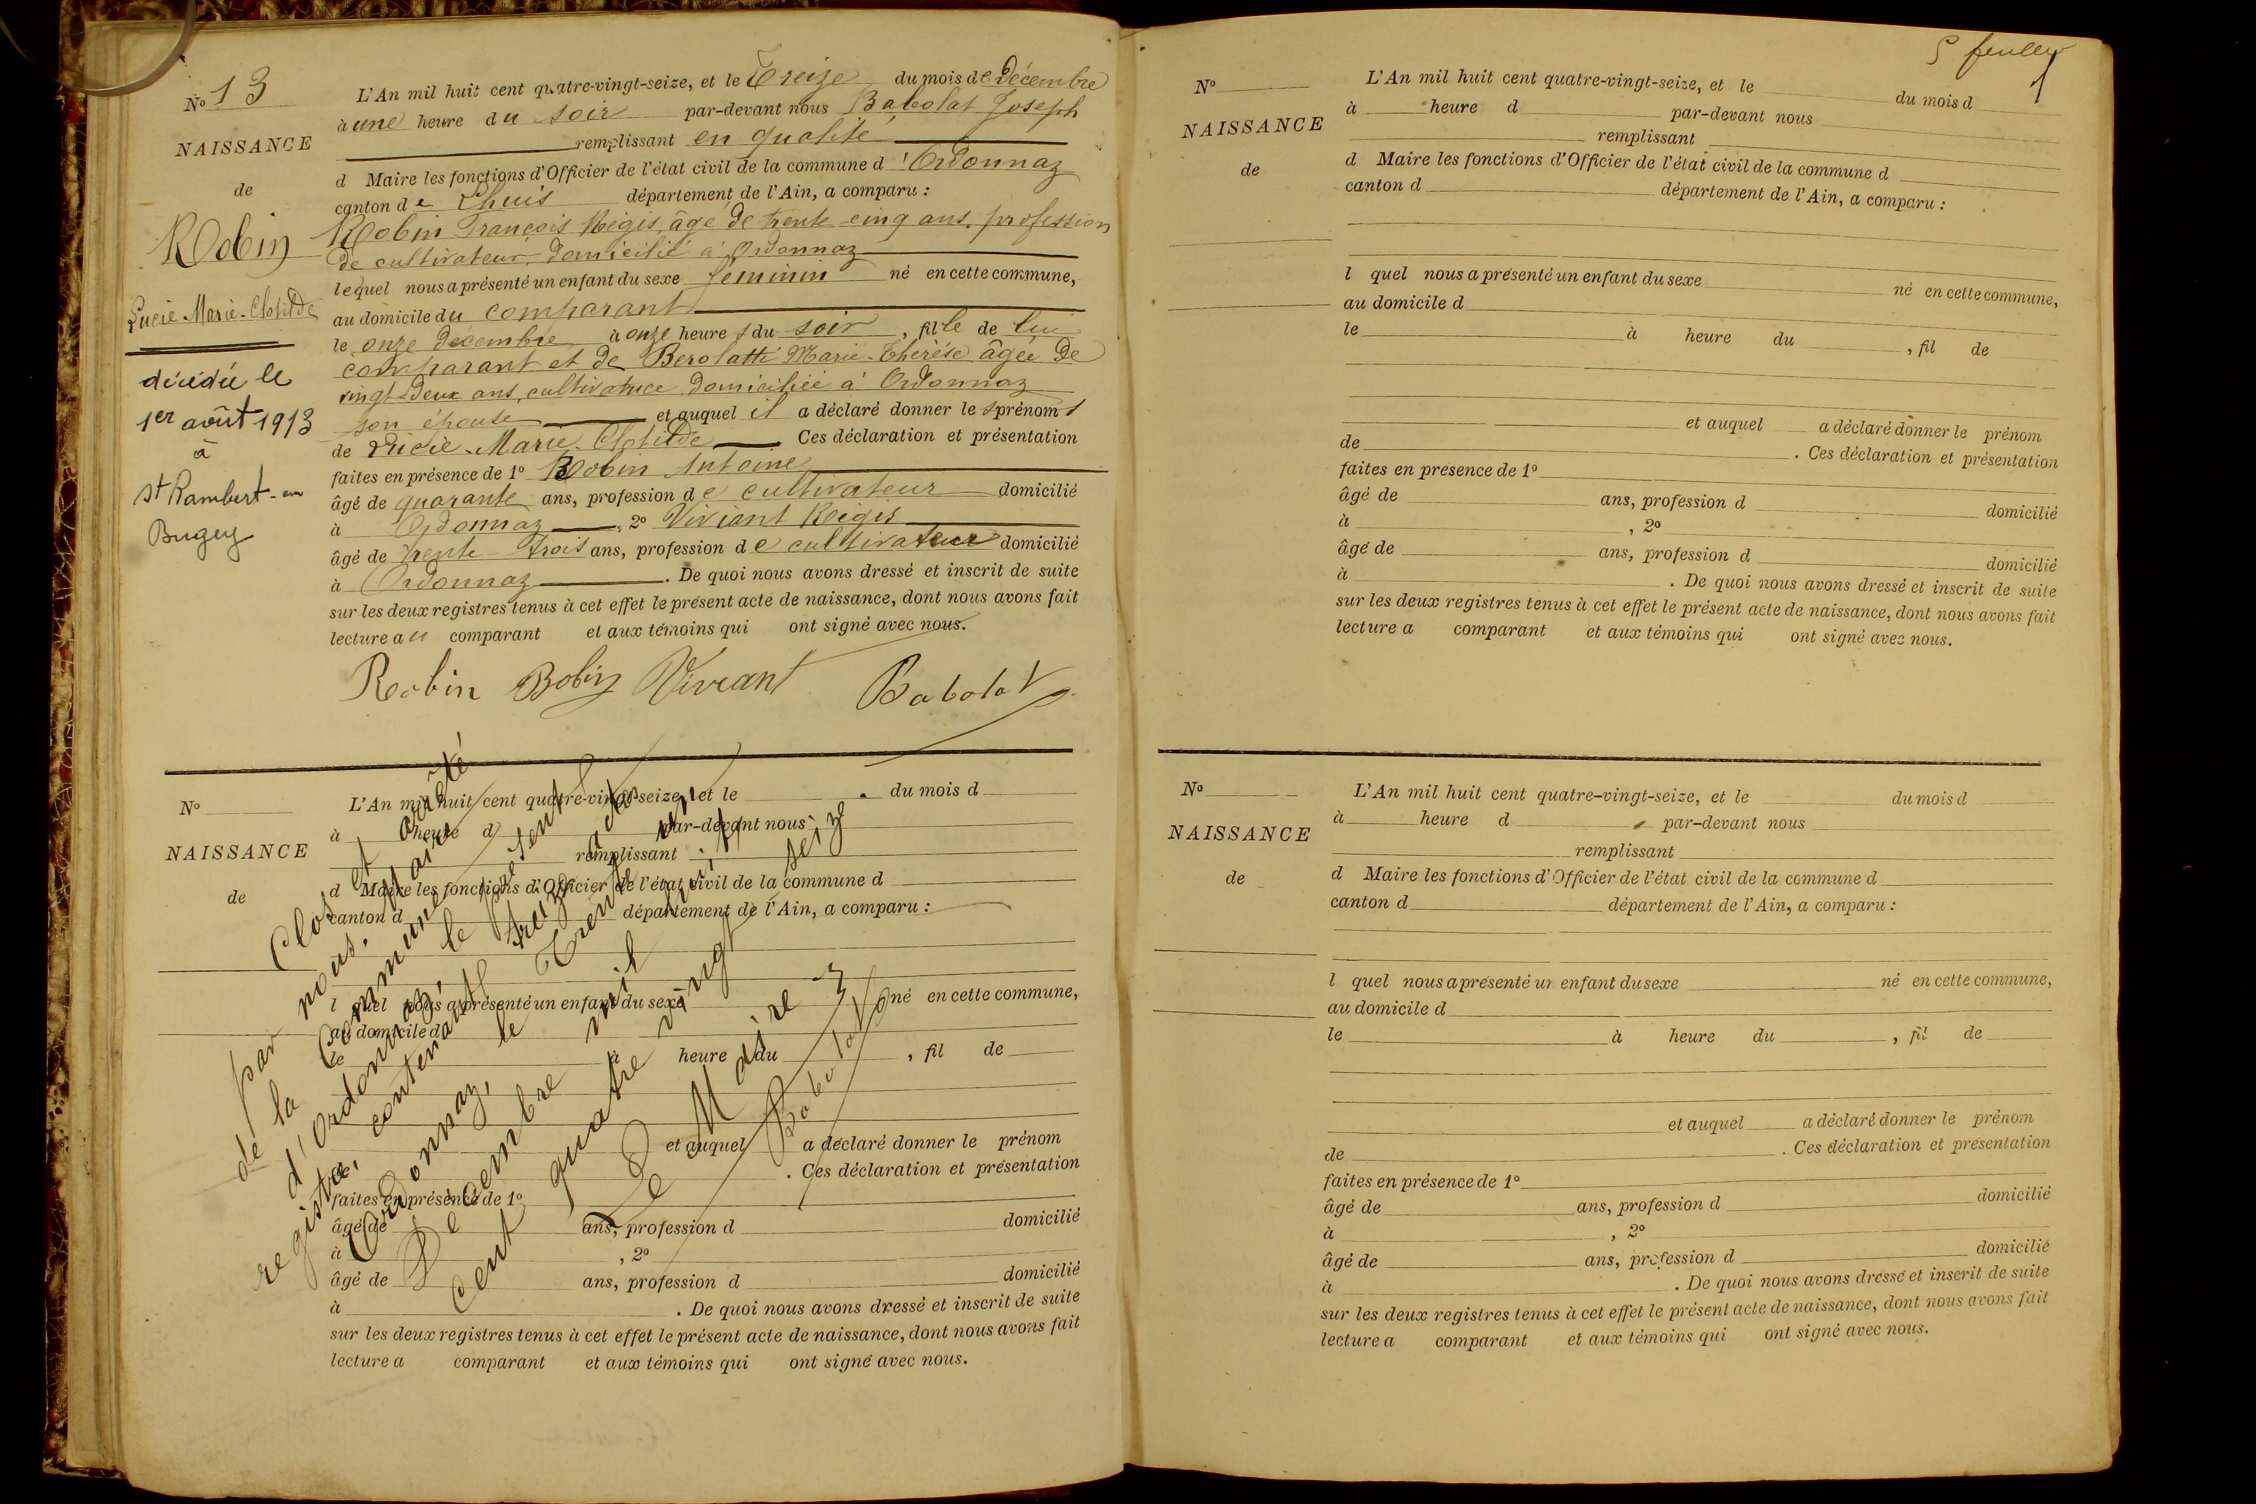 No 13
NAISSANCE
de
Robin
Lucie-Marie-Clotilde
décédée le
1er août 1913
à
St Rambert-en
Bugey
L'An mil huit cent quatre-vingt-seize, et le Treize du mois de Décembre
à une heure du soir par-devant nous Babolat Joseph
remplissant en qualité
d Maire les fonctions d'Officier de l'état civil de la commune d'Ordonnaz
canton de Lhuis département de l'Ain, a comparu :
Robin François Régis, âgé de trente-cinq ans, profession
de cultivateur, domicilié à Ordonnaz
lequel nous a présenté un enfant du sexe féminin né en cette commune,
au domicile du comparant
le onze décembre à onze heures du soir, fille de lui
comparant et de Berolatti Marie-Thérèse âgée de
vingt-deux ans, cultivatrice domiciliée à Ordonnaz
son épouse et auquel il a déclaré donner les prénoms
de Lucie-Marie-Clotilde Ces déclaration et présentation
faites en présence de 1º Robin Antoine
âgé de quarante ans, profession de cultivateur domicilié
à Ordonnaz, 2º Viviant Régis
âgé de trente-trois ans, profession de cultivateur domicilié
à Ordonnaz. De quoi nous avons dressé et inscrit de suite
sur les deux registres tenus à cet effet le présent acte de naissance, dont nous avons fait
lecture au comparant et aux témoins qui ont signé avec nous.
Robin Robin Viviant Babolat
No
NAISSANCE
de
L'An mil huit cent quatre-vingt-seize, et le du mois d
à heure d par-devant nous
remplissant
d Maire les fonctions d'Officier de l'état civil de la commune d
canton d département de l'Ain, a comparu :
l quel nous a présenté un enfant du sexe né en cette commune,
au domicile d
le à heure du , fil de
et auquel a déclaré donner le prénom
. Ces déclaration et présentation
faites en présence de 1º
âgé de ans, profession d domicilié
à , 2º
âgé de ans, profession d domicilié
à . De quoi nous avons dressé et inscrit de suite
sur les deux registres tenus à cet effet le présent acte de naissance, dont nous avons fait
lecture a comparant et aux témoins qui ont signé avec nous.
Clos et arrêté
par nous, Maire
de la Commune
d'Ordonnaz, le présent
registre, contenant treize actes
Ordonnaz, le Trente un
Décembre mil huit
cent quatre vingt seize
Le Maire
Babolat
5 feuillets
No
NAISSANCE
de
L'An mil huit cent quatre-vingt-seize, et le du mois d
à heure d par-devant nous
remplissant
d Maire les fonctions d'Officier de l'état civil de la commune d
canton d département de l'Ain, a comparu :
l quel nous a présenté un enfant du sexe né en cette commune,
au domicile d
le à heure du , fil de
et auquel a déclaré donner le prénom
de . Ces déclaration et présentation
faites en presence de 1º
âgé de ans, profession d domicilié
à , 2º
âgé de ans, profession d domicilié
à . De quoi nous avons dressé et inscrit de suite
sur les deux registres tenus à cet effet le présent acte de naissance, dont nous avons fait
lecture a comparant et aux témoins qui ont signé avec nous.
No
NAISSANCE
de
L'An mil huit cent quatre-vingt-seize, et le du mois d
à heure d par-devant nous
remplissant
d Maire les fonctions d'Officier de l'état civil de la commune d
canton d département de l'Ain, a comparu :
l quel nous a présenté un enfant du sexe né en cette commune,
au domicile d
le à heure du , fil de
et auquel a déclaré donner le prénom
de . Ces déclaration et présentation
faites en présence de 1º
âgé de ans, profession d domicilié
à , 2º
âgé de ans, profession d domicilié
à . De quoi nous avons dressé et inscrit de suite
sur les deux registres tenus à cet effet le présent acte de naissance, dont nous avons fait
lecture a comparant et aux témoins qui ont signé avec nous.